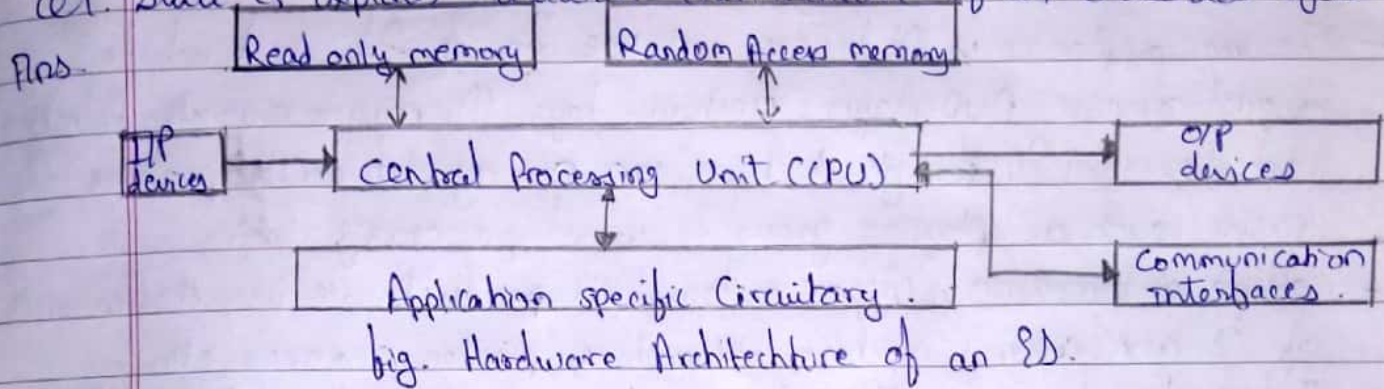 Read only memory Random Access memory
Ans.
I/P devices Central Processing Unit (CPU) O/P devices
Application specific Circuitary. Communication interfaces.
fig. Hardware Architechture of an ES.